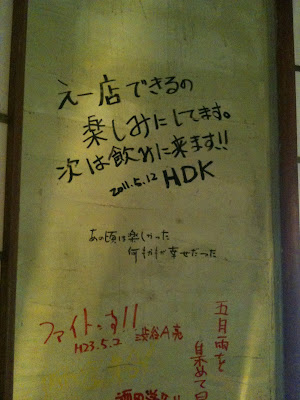 えー店できるの
楽しみにしてます。
次は飲みに来ます!!
2011.5.12 HDK
あの頃は楽しかった
何もかもが幸せだった
ファイトっす!!
H23.5.2
五月雨を
集めて